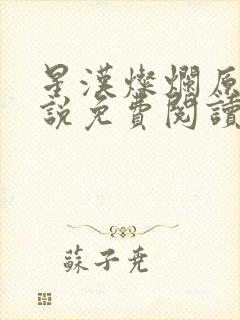 星漢燦爛原
說免費閱讀
蘇子堯